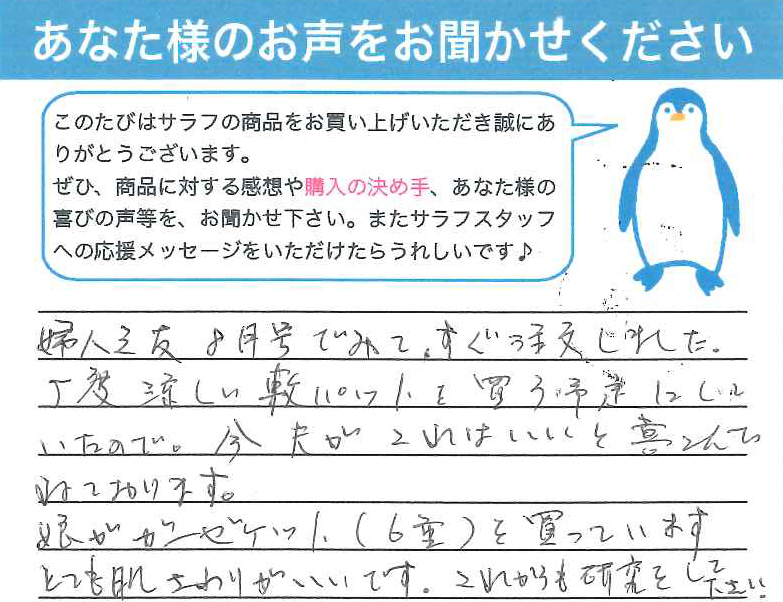 あなた様のお声をお聞かせください
このたびはサラフの商品をお買い上げいただき誠にあ
りがとうございます。
ぜひ、商品に対する感想や購入の決め手、あなた様の
喜びの声等を、お聞かせ下さい。またサラフスタッフ
への応援メッセージをいただけたらうれしいです♪
婦人之友 8月号でみて、すぐ注文しました。
丁度涼しい敷パットを買う予定にして
いたので。今 夫がこれはいいと喜こんで
ねております。
娘がガーゼケット(6重)を買っています
とても肌さわりがいいです。これからも研究をして下さい。